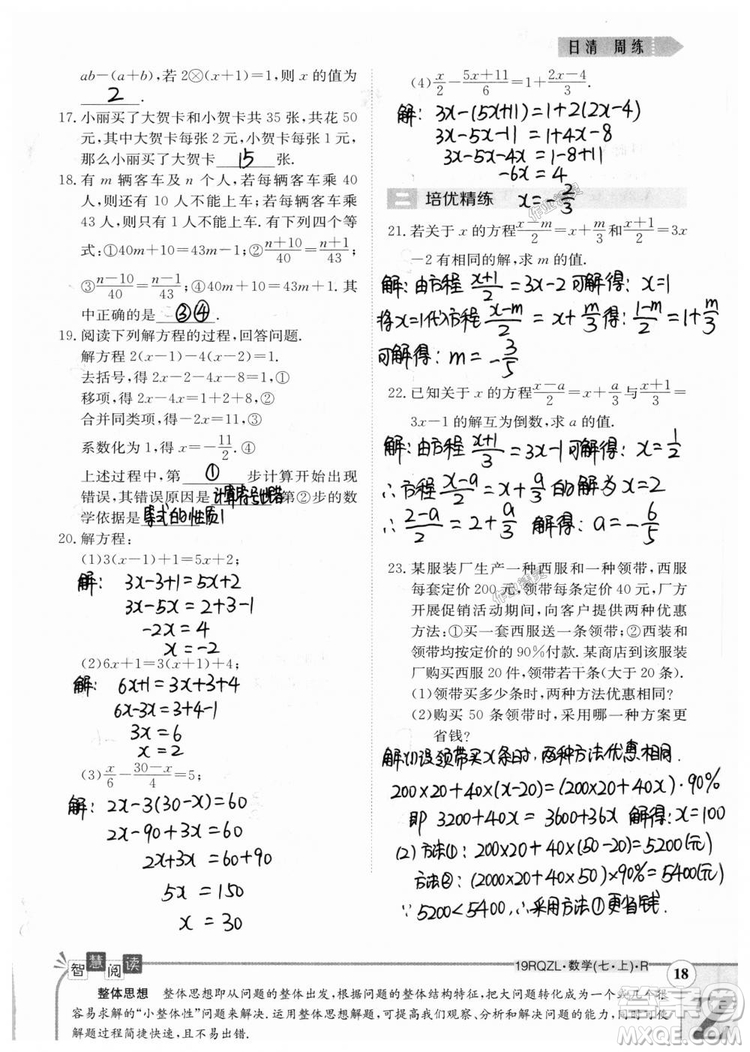 日清 周练
ab-(a+b),若 2⊗(x+1)=1,则 x 的值为
2 .
17. 小丽买了大贺卡和小贺卡共 35 张,共花 50
元,其中大贺卡每张 2 元,小贺卡每张 1 元,
那么小丽买了大贺卡 15 张.
18. 有 m 辆客车及 n 个人,若每辆客车乘 40
人,则还有 10 人不能上车;若每辆客车乘
43 人,则只有 1 人不能上车.有下列四个等
式:①40m+10=43m-1;②(n+10)/40=(n+1)/43;
③(n-10)/40=(n-1)/43;④40m+10=43m+1.其
中正确的是 ③④ .
19. 阅读下列解方程的过程,回答问题.
解方程 2(x-1)-4(x-2)=1.
去括号,得 2x-2-4x-8=1,①
移项,得 2x-4x=1+2+8,②
合并同类项,得-2x=11,③
系数化为 1,得 x=-11/2.④
上述过程中,第 ① 步计算开始出现
错误,其错误原因是 第②步的数
学依据是 等式的性质1 .
20. 解方程:
(1)3(x-1)+1=5x+2;
解: 3x-3+1=5x+2
3x-5x=4
-2x=4
x=-2
(2)6x+1=3(x+1)+4;
解: 6x+1=3x+3+4
6x-3x=3+4-1
3x=6
x=2
(3)x/6-(30-x)/4=5;
解: 2x-3(30-x)=60
2x-90+3x=60
2x+3x=60+90
5x=150
x=30
(4)x/2-(5x+11)/6=1+(2x-4)/3.
解: 3x-(5x+11)=1+2(2x-4)
3x-5x-11=1+4x-8
-6x=4
x=-2/3
二 培优精练
21. 若关于 x 的方程(x-m)/2=x+m/3和(x+1)/2=3x
-2 有相同的解,求 m 的值.
解:由方程(x+1)/2=3x-2可解得:x=1
将x=1代入方程(x-m)/2=x+m/3得:(1-m)/2=1+m/3
可解得:m=-3/5
22. 已知关于 x 的方程(x-a)/2=x+a/3与(x+1)/3=
3x-1 的解互为倒数,求 a 的值.
解:由方程(x+1)/3=3x-1可解得:x=1/2
∴方程(x-a)/2=x+a/3的解为x=2
∴(2-a)/2=2+a/3 解得:a=-6/5
23. 某服装厂生产一种西服和一种领带,西服
每套定价 200 元,领带每条定价 40 元,厂方
开展促销活动期间,向客户提供两种优惠
方法:①买一套西服送一条领带;②西服和领
带均按定价的90%付款.某商店到该服装
厂购买西服 20 件,领带若干条(大于 20 条).
(1)领带买多少条时,两种方法优惠一样?
(2)购买 50 条领带时,采用哪一种方案更
省钱?
解:(1)设领带买x条时,两种方法优惠一样.
200×20+40×(x-20)=(200×20+40x)·90%
即 3200+40x=3600+36x 解得:x=100
(2)方法①:200×20+40×(50-20)=5200(元)
方法②:(200×20+40×50)×90%=5400(元)
∵5200<5400 ∴采用方法①更省钱.
智慧阅读
19RQZL·数学(七·上)·R
18
整体思想 整体思想即从问题的整体出发,根据问题的整体结构特征,把大问题分成一个或几个很
容易求解的“小整体性”问题来解决.运用整体思想解题,可提高我们观察、分析和解决问题的能力,使
解题过程简捷快速,且不易出错.